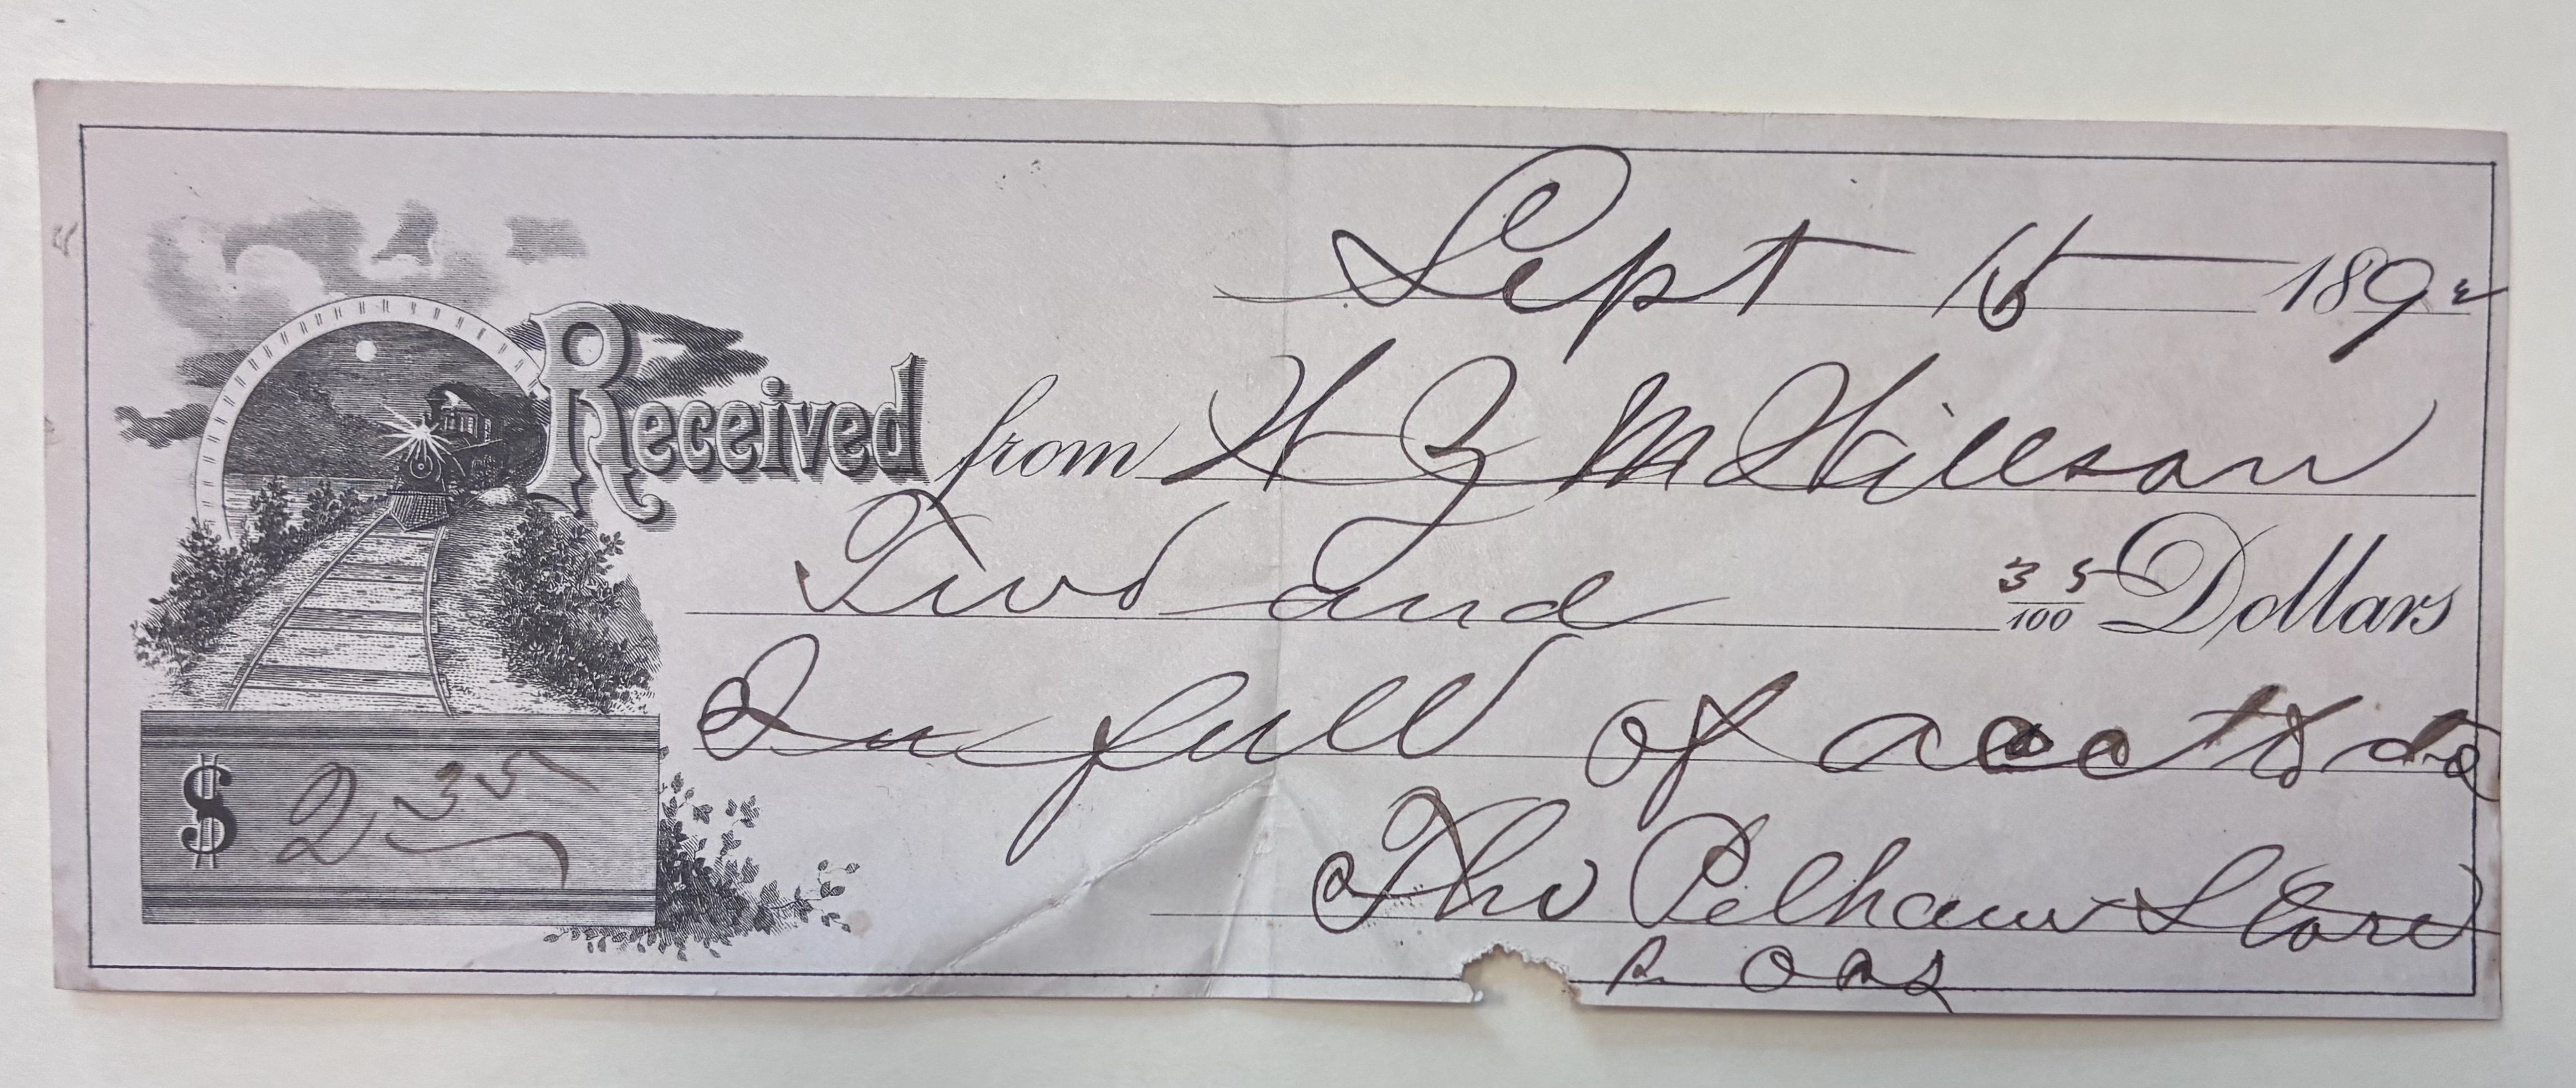 Sept 16 1892
Received from H Z McWillson
Two and 35/100 Dollars
In full of acct to date
$ 2 35
The Pelham Store